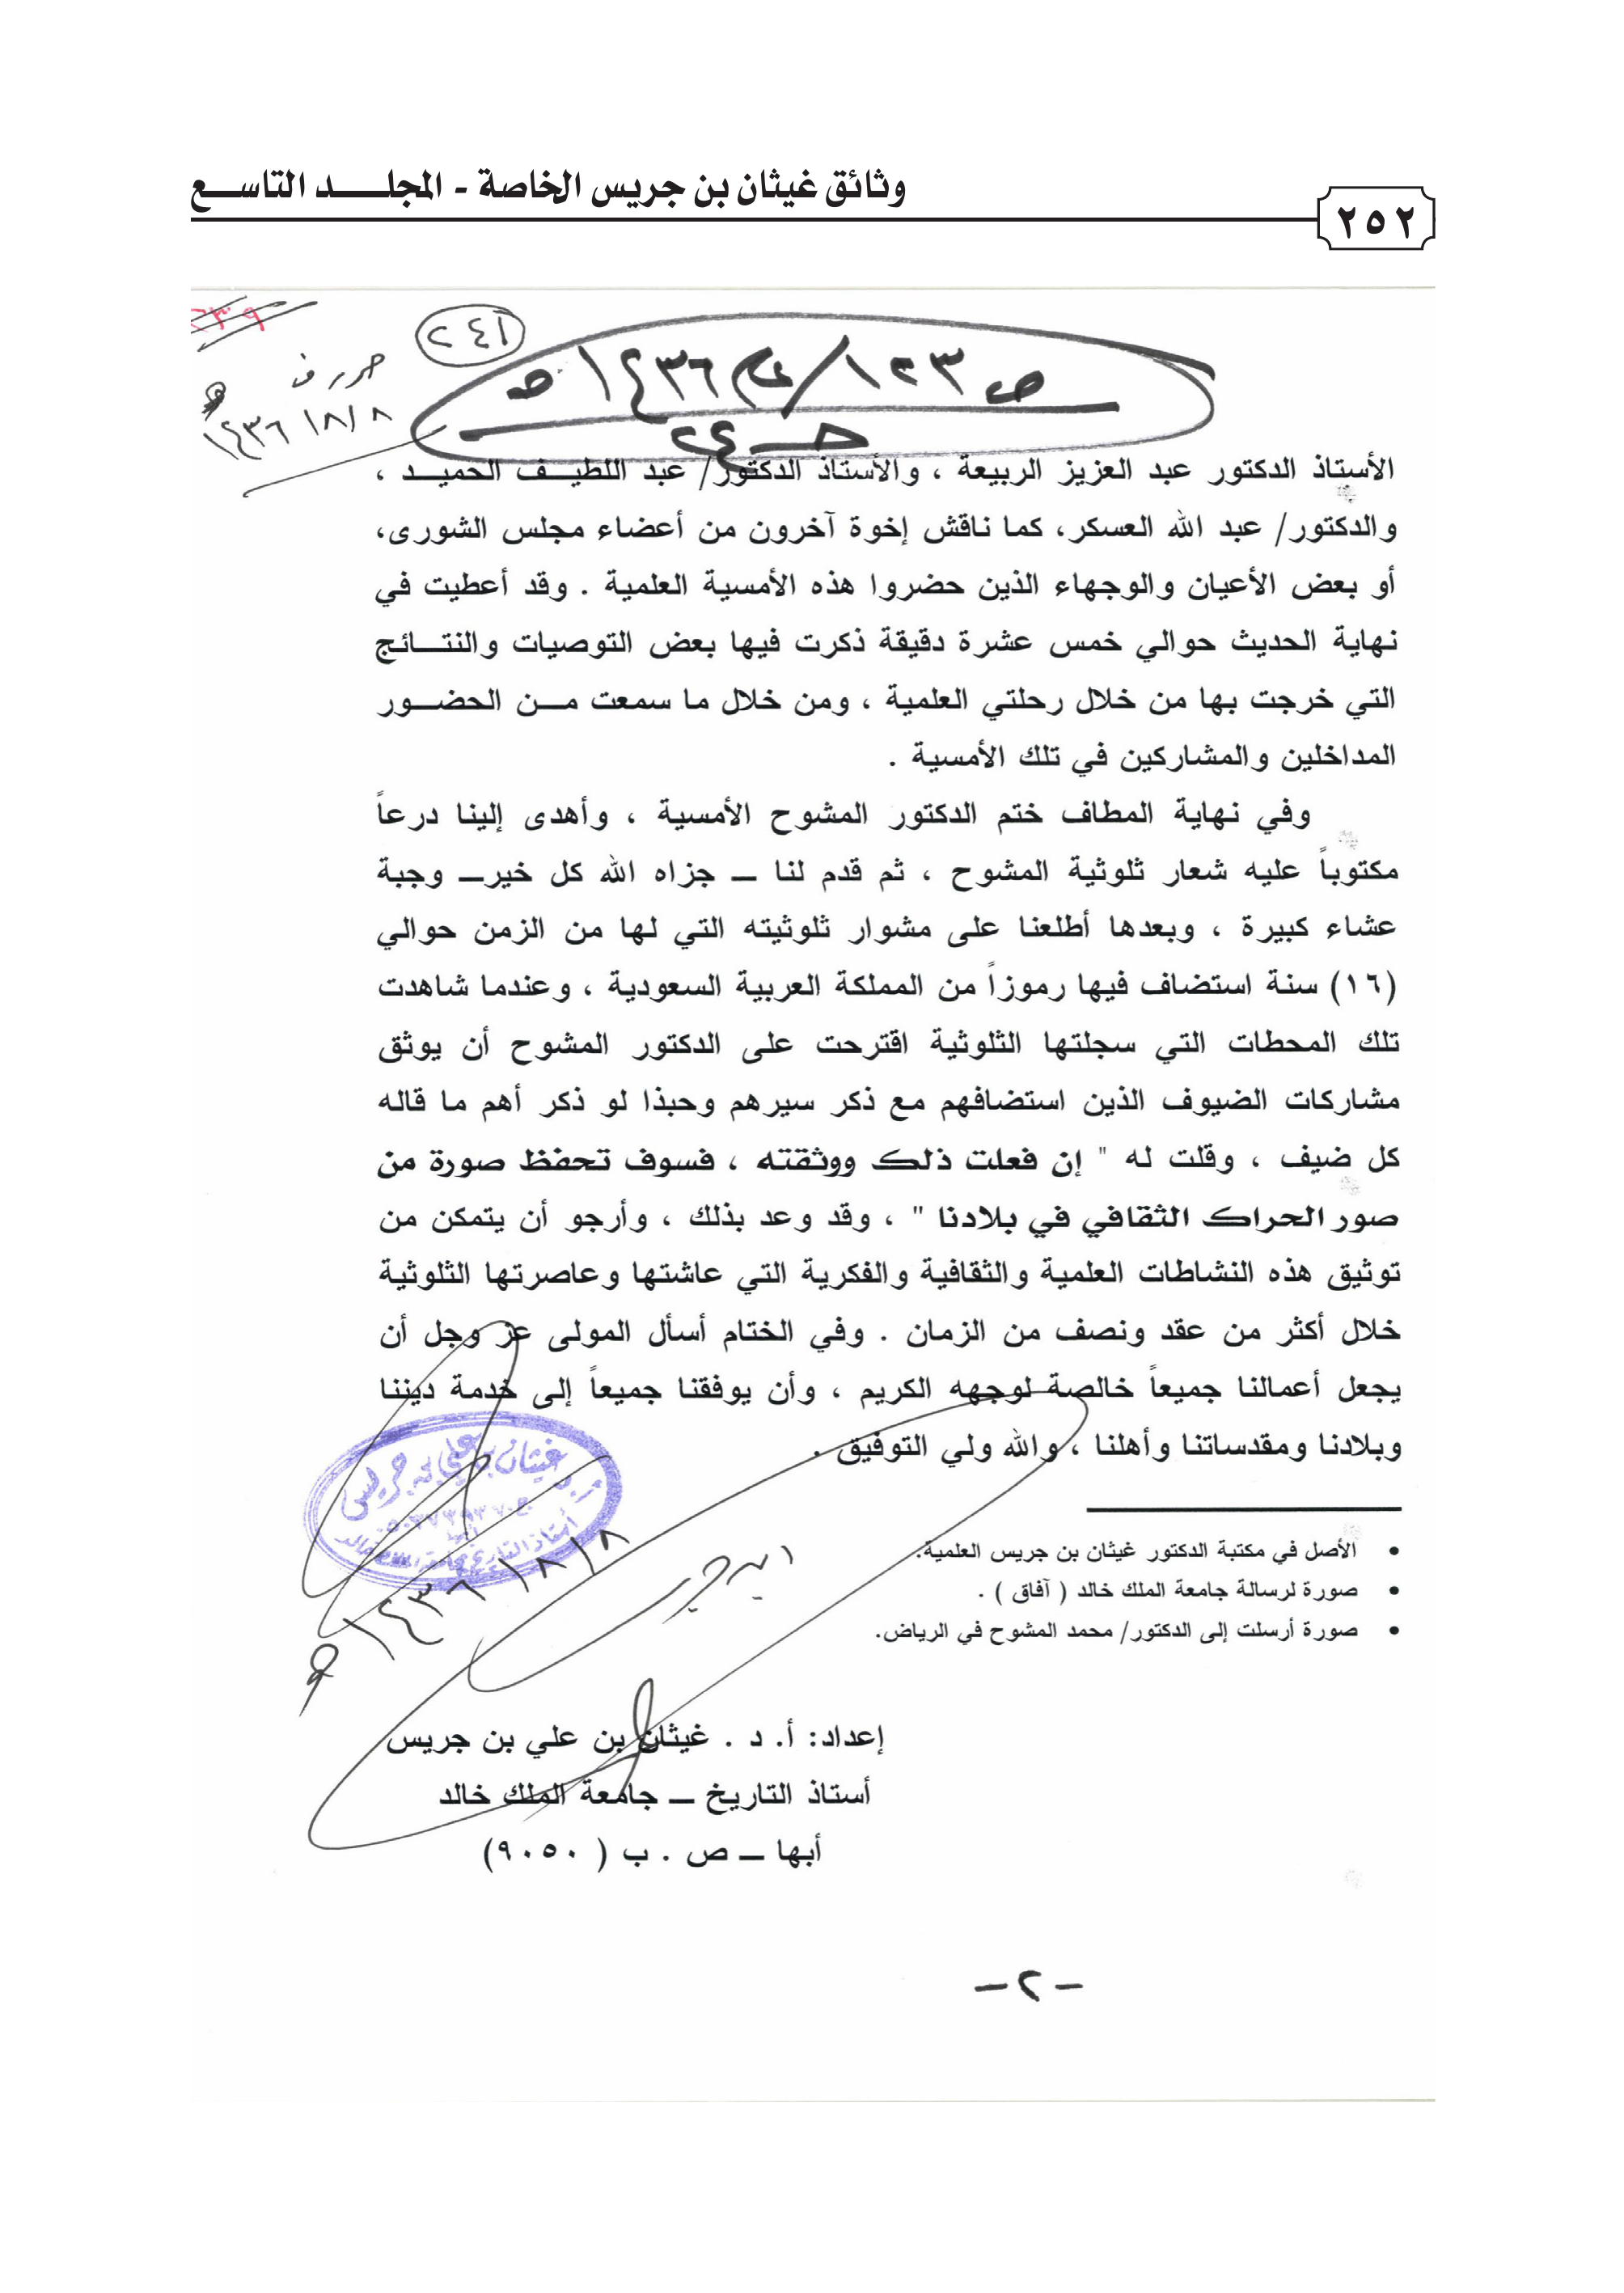 وثائق غيثان بن جريس الخاصة - المجلـــد التاســـع
٢٥٢
٢٤١
ص ١٢٣ / عام ١٤٣٦هـ
حـ ٢٤
٨/٨/١٤٣٦هـ
الأستاذ الدكتور عبد العزيز الربيعة ، والأستاذ الدكتور/ عبد اللطيـف الحميـد ،
والدكتور/ عبد الله العسكر، كما ناقش إخوة آخرون من أعضاء مجلس الشورى،
أو بعض الأعيان والوجهاء الذين حضروا هذه الأمسية العلمية . وقد أعطيت في
نهاية الحديث حوالي خمس عشرة دقيقة ذكرت فيها بعض التوصيات والنتـــائج
التي خرجت بها من خلال رحلتي العلمية ، ومن خلال ما سمعت مـن الحضـور
المداخلين والمشاركين في تلك الأمسية .
وفي نهاية المطاف ختم الدكتور المشوح الأمسية ، وأهدى إلينا درعاً
مكتوباً عليه شعار ثلوثية المشوح ، ثم قدم لنا ــ جزاه الله كل خيرــ وجبة
عشاء كبيرة ، وبعدها أطلعنا على مشوار ثلوثيته التي لها من الزمن حوالي
(١٦) سنة استضاف فيها رموزاً من المملكة العربية السعودية ، وعندما شاهدت
تلك المحطات التي سجلتها الثلوثية اقترحت على الدكتور المشوح أن يوثق
مشاركات الضيوف الذين استضافهم مع ذكر سيرهم وحبذا لو ذكر أهم ما قاله
كل ضيف ، وقلت له " إن فعلت ذلك ووثقته ، فسوف تحفظ صورة من
صور الحراك الثقافي في بلادنا " ، وقد وعد بذلك ، وأرجو أن يتمكن من
توثيق هذه النشاطات العلمية والثقافية والفكرية التي عاشتها وعاصرتها الثلوثية
خلال أكثر من عقد ونصف من الزمان . وفي الختام أسأل المولى عز وجل أن
يجعل أعمالنا جميعاً خالصة لوجهه الكريم ، وأن يوفقنا جميعاً إلى خدمة ديننا
وبلادنا ومقدساتنا وأهلنا ، والله ولي التوفيق .
أ.د غيثان بن علي بن جريس
٨/٨/١٤٣٦هـ
ابن جريس
• الأصل في مكتبة الدكتور غيثان بن جريس العلمية.
• صورة لرسالة جامعة الملك خالد ( آفاق ) .
• صورة أرسلت إلى الدكتور/ محمد المشوح في الرياض.
إعداد: أ. د . غيثان بن علي بن جريس
أستاذ التاريخ ــ جامعة الملك خالد
أبها ــ ص . ب ( ٩٠٥٠)
-٢-